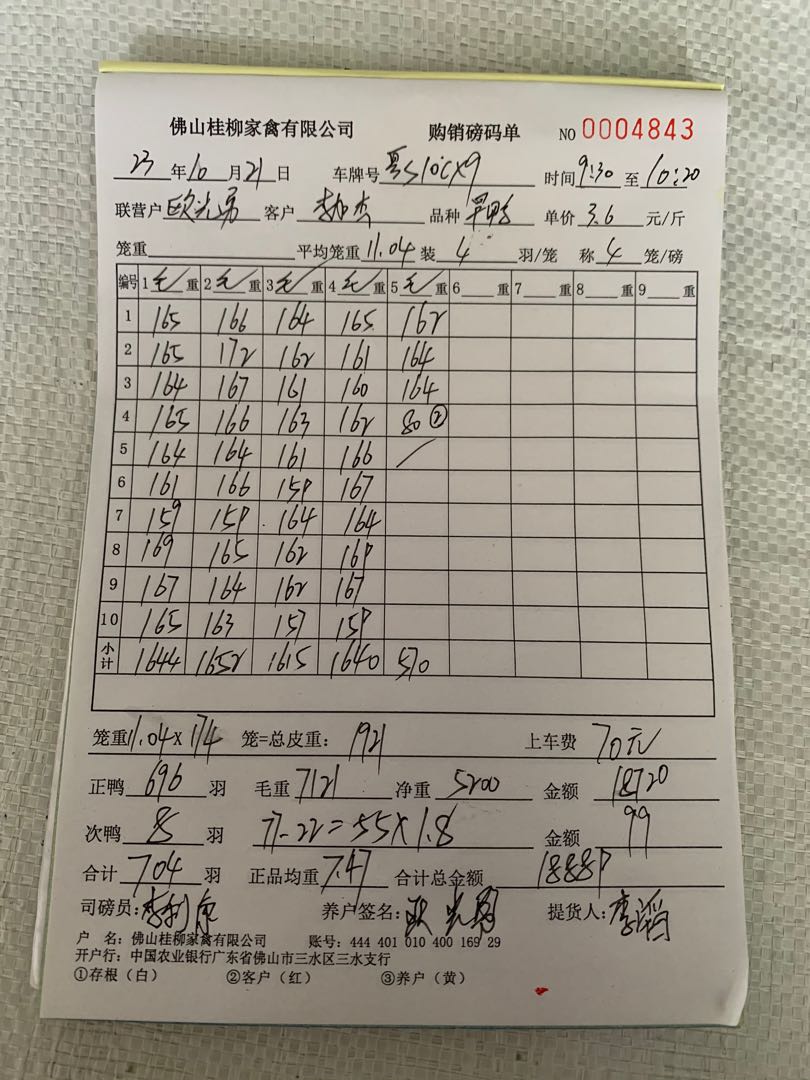 佛山桂柳家禽有限公司 购销磅码单 NO 0004843
23年10月21日 车牌号 时间9:30至10:20
联营户 欧光勇 客户 品种 单价 3.6 元/斤
笼重 平均笼重 11.04 装 4 羽/笼 称 4 笼/磅
编号 1毛重 2毛重 3毛重 4毛重 5毛重 6 重 7 重 8 重 9 重
1 165 166 164 165 162
2 165 172 162 161 164
3 164 167 161 160 164
4 165 166 163 162 80②
5 164 164 161 166 /
6 161 166 159 167
7 159 159 164 164
8 169 165 162 169
9 167 164 162 167
10 165 163 157 159
小计 1644 1652 1615 1640 570
笼重 11.04×174 笼=总皮重: 1921 上车费 70元
正鸭 696 羽 毛重 7121 净重 5200 金额 18720
次鸭 8 羽 77-22=55×1.8 金额 99
合计 704 羽 正品均重 7.47 合计总金额 18889
司磅员: 养户签名: 欧光勇 提货人:
户 名: 佛山桂柳家禽有限公司 账号: 444 401 010 400 169 29
开户行: 中国农业银行广东省佛山市三水区三水支行
①存根(白) ②客户(红) ③养户(黄)